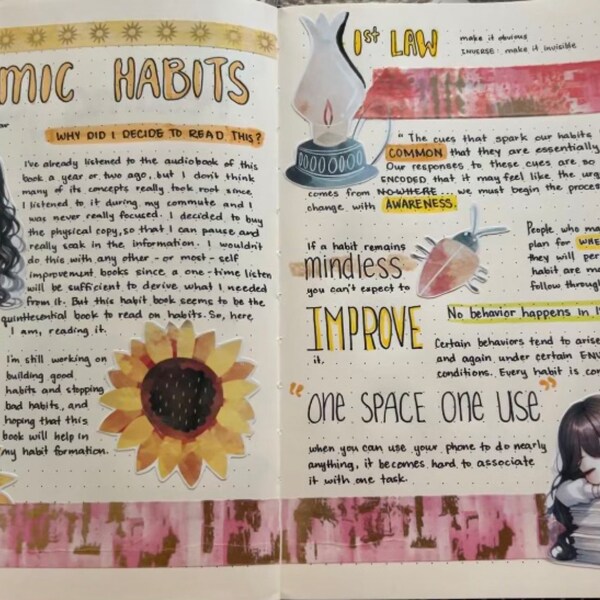 MIC HABITS
WHY DID I DECIDE TO READ THIS?
I've already listened to the audiobook of this
book a year or two ago, but I don't think
many of its concepts really took root since
I listened to it during my commute and I
was never really focused. I decided to buy
the physical copy, so that I can pause and
really soak in the information. I wouldn't
do this with any other - or most - self
improvement books since a one-time listen
will be sufficient to derive what I needed
from it. But this habit book seems to be the
quintessential book to read on habits. So, here
I am, reading it.
I'm still working on
building good
habits and stopping
bad habits, and
hoping that this
book will help in
my habit formation.
1st LAW
make it obvious
INVERSE: make it invisible
"The cues that spark our habits
COMMON that they are essentially
Our responses to these cues are so
ENCODED that it may feel like the urge
comes from NOWHERE ... we must begin the proces
change with AWARENESS.
If a habit remains
mindless
you can't expect to
IMPROVE
it.
People who ma
plan for WHE
they will per
habit are m
follow through
No behavior happens in I
Certain behaviors tend to arise
and again under certain ENV
conditions. Every habit is con
"ONE SPACE ONE USE"
when you can use your phone to do nearly
anything, it becomes hard to associate
it with one task.